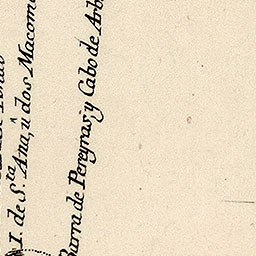 I. de S.ta Ana, ù dos Macomi
Barra de Pereyras, y Cabo de Arb